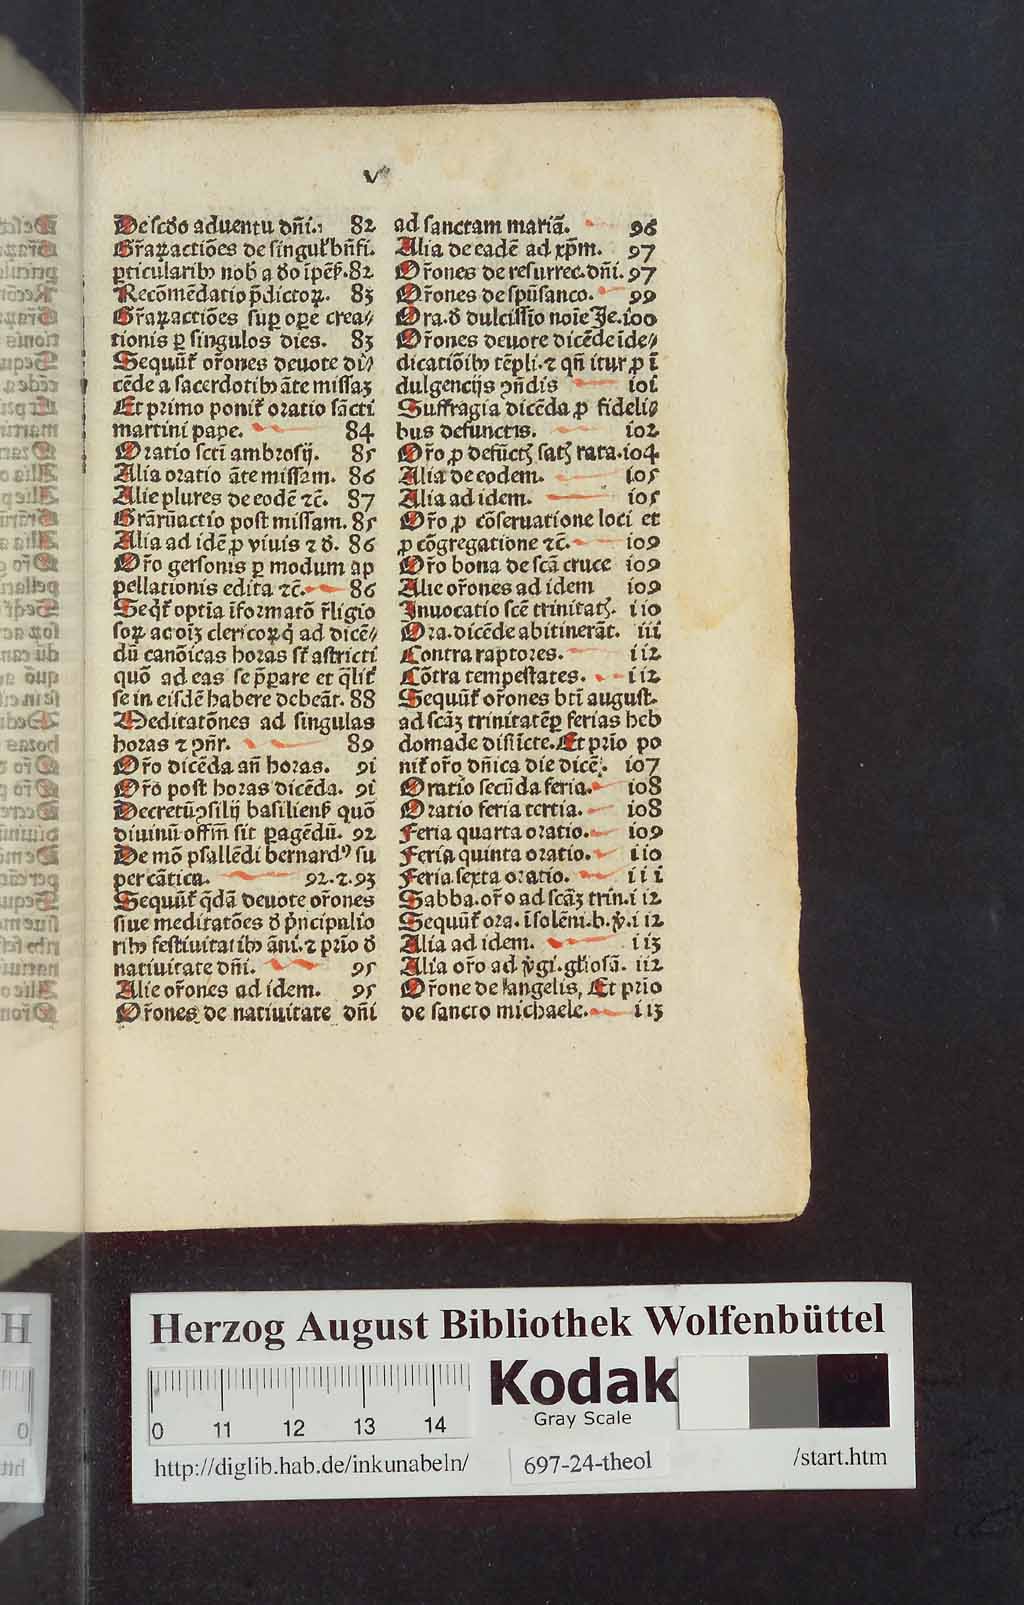 v
De scd̄o aduentu dn̄i. 82
Gr̄aꝝactiōes de singul̄ bn̄fi.
ꝑticularibꝫ nob̄ a d̄o īpēẜ. 82
Recōmēdatio p̄dictoꝝ. 83
Gr̄aꝝactiōes suꝑ oꝑe crea⸗
tionis ꝑ singulos dies. 83
Sequūt̄ or̄ones deuote di⸗
cēde a sacerdotibꝫ āte missaꝫ
Et primo ponit̄ oratio sācti
martini pape. 84
Oratio scti ambrosij. 85
Alia oratio āte missam. 86
Alie plures de eodē ⁊c̄. 87
Grārūactio post missam. 85
Alia ad idē ꝓ viuis ⁊ d̄. 86
Or̄o gersonis ꝑ modum ap
pellationis edita ⁊c̄. 86
Seqr̄ optīa īformatō r̄ligio
soꝝ ac oīꝫ clericoꝝ q̄ ad dicē⸗
dū canōicas horas st̄ astricti
quō ad eas se p̄ꝑare et q̄lit̄
se in eisdē habere debeāt. 88
Meditatōnes ad singulas
horas ⁊ ꝯn̄r. 89
Or̄o dicēda an̄ horas. 91
Or̄o post horas dicēda. 91
Decretū ꝯsilij basilienẜ quō
diuinū offm̄ sit ꝑagēdū. 92
De mō psallēdi bernardꝰ su
per cātica. 92. ⁊. 93
Sequūt̄ q̄dā deuote or̄ones
siue meditatōes d̄ p̄ncipalio
ribꝫ festiuitatibꝫ āni. ⁊ prīo d̄
natiuitate dn̄i. 95
Alie or̄ones ad idem. 95
Or̄ones de natiuitate dn̄i
ad sanctam mariā. 96
Alia de eadē ad xp̄m. 97
Or̄ones de resurrec. dn̄i. 97
Or̄ones de spūsanco. 99
Ora. d̄ dulcissīo noīe Je. 100
Or̄ones deuote dicēde ī de⸗
dicatiōibꝫ tēpli. ⁊ qn̄ itur ꝓ ī
dulgencijs ꝯn̄dis 101
Suffragia dicēda ꝓ fideli⸗
bus defunctis. 102
Or̄o ꝓ defūctꝭ satꝭ rata. 104
Alia de eodem. 105
Alia ad idem. 105
Or̄o ꝓ cōseruatione loci et
ꝓ cōgregatione ⁊c̄. 109
Or̄o bona de scā cruce 109
Alie or̄ones ad idem 109
Inuocatio scē trinitatꝭ. 110
Ora. dicēde ab itinerāt. 111
Contra raptores. 112
Cōtra tempestates. 112
Sequūt̄ or̄ones bti august.
ad scāꝫ trinitatē ꝑ ferias heb
domade distīcte. Et prīo po
nit̄ or̄o dn̄ica die dicē. 107
Oratio secūda feria. 108
Oratio feria tertia. 108
Feria quarta oratio. 109
Feria quinta oratio. 110
Feria sexta oratio. 111
Sabba. or̄o ad scāꝫ trin. 112
Sequūt̄ ora. ī solēni. b. v̄. 112
Alia ad idem. 113
Alia or̄o ad v̄gi. gliosā. 112
Or̄one de angelis, Et prīo
de sancto michaele. 113
Herzog August Bibliothek Wolfenbüttel
Kodak
Gray Scale
0 11 12 13 14
http://diglib.hab.de/inkunabeln/ 697-24-theol /start.htm